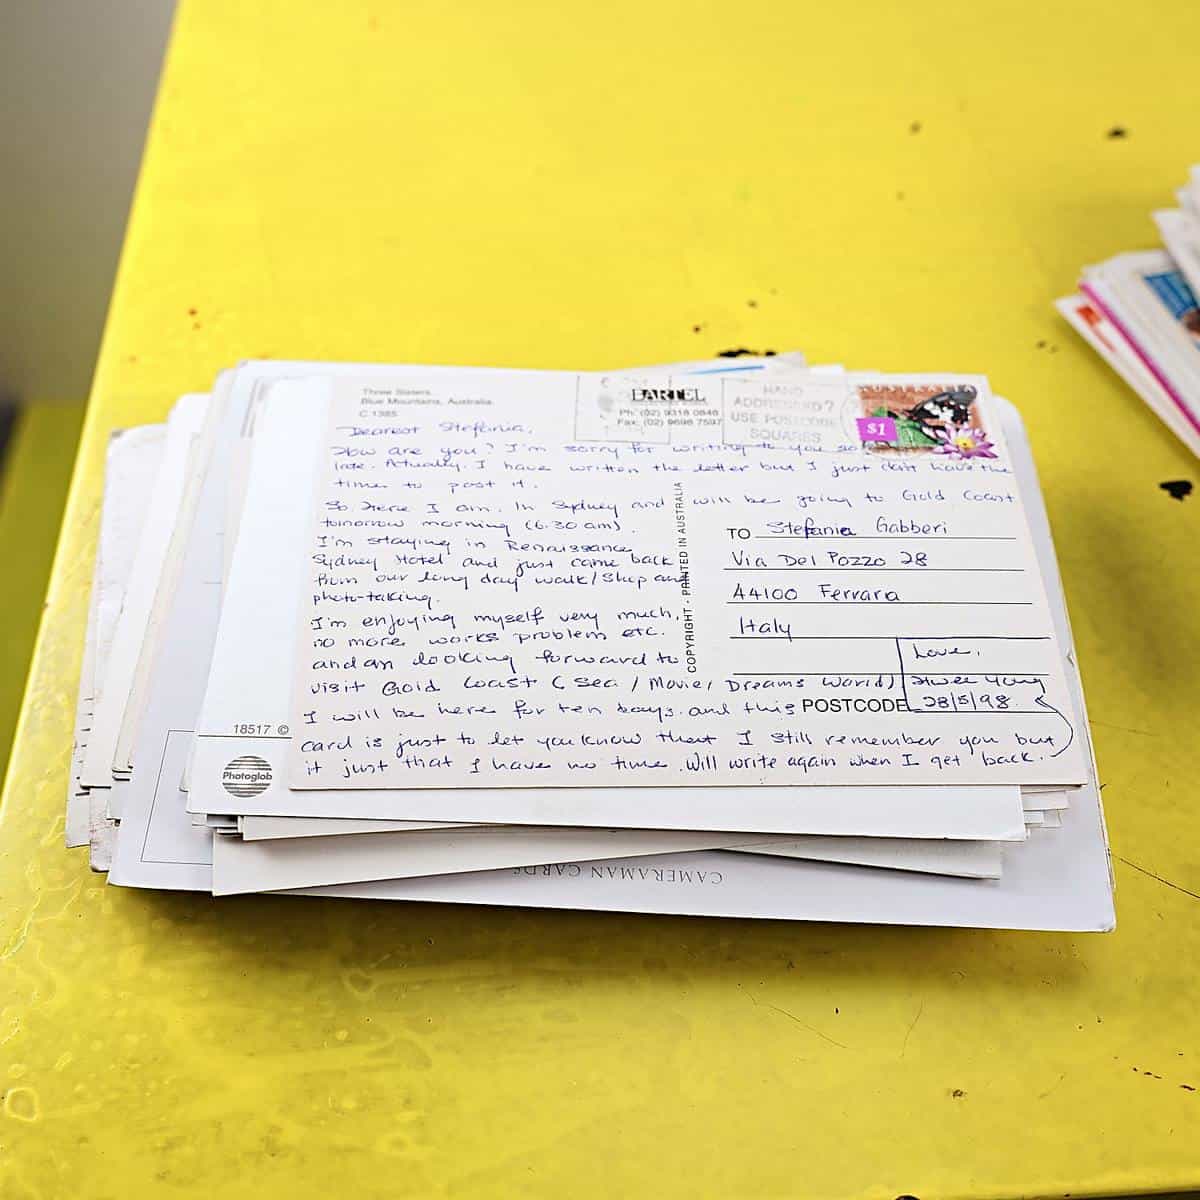 Three Sisters,
Blue Mountains, Australia.
C 1385
BARTEL
Ph: (02) 9318 0848
Fax: (02) 9698 7597
HAND
ADDRESSED?
USE POSTCODE
SQUARES
$1
Dearest Stefania,
How are you? I'm sorry for writing to you so
late. Actually, I have written the letter but I just don't have the
time to post it.
So here I am. In Sydney and will be going to Gold Coast
tomorrow morning (6.30 am).
I'm staying in Renaissance
Sydney Hotel and just came back
from our long day walk/shop and
photo-taking.
I'm enjoying myself very much,
no more works problem etc.
and am looking forward to
visit Gold Coast (Sea / Movie / Dreams World)
I will be here for ten days. and this
card is just to let you know that I still remember you but
it just that I have no time. Will write again when I get back.
COPYRIGHT - PRINTED IN AUSTRALIA
TO Stefania Gabberi
Via Del Pozzo 28
44100 Ferrara
Italy
Love,
28/5/98.
POSTCODE
18517 ©
Photoglob
CAMERAMAN CARDS